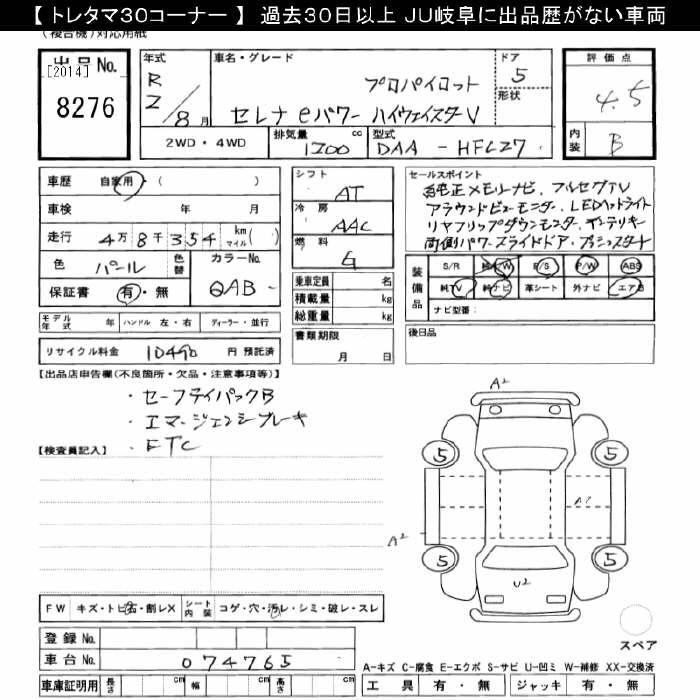 【 トレタマ30コーナー 】 過去30日以上 JU岐阜に出品歴がない車両
(複合機)対応用紙
出品No.
[2014]
8276
年式
R
2/8月
車名・グレード
プロパイロット
セレナ eパワー ハイウェイスターV
ドア
5
形状
評価点
4.5
内装
B
2WD・4WD
排気量
1200
cc
型式
DAA - HFC27
車歴
自家用・( )
車検
年 月
走行
4万8千354
km
マイル( )
色
パール
色替
カラーNo.
QAB
保証書
有・無
シフト
AT
冷房
AAC
燃料
G
乗車定員 名
積載量 kg
総重量 kg
セールスポイント
純正メモリーナビ、フルセグTV
アラウンドビューモニター、LEDヘッドライト
リヤフリップダウンモニター、インテリキー
両側パワースライドドア・プッシュスタート
装備品
S/R 純AW P/S P/W ABS
純TV 純ナビ 革シート 外ナビ エアB
ナビ型番:
モデル年式 年 ハンドル 左・右 ディーラー・並行
書類期限
月 日
後日品
リサイクル料金 10490 円 預託済
【出品店申告欄(不良箇所・欠品・注意事項等)】
・セーフティパックB
・エマージェンシーブレーキ
・ETC
【検査員記入】
A2
5
5
A2
5
5
U2
FW キズ・トビ石・割レX
シート内装 コゲ・穴・汚レ・シミ・破レ・スレ
スペア
登録No.
車台No.
074765
A-キズ C-腐食 E-エクボ S-サビ U-凹ミ W-補修 XX-交換済
車庫証明用 長さ cm 幅 cm 高さ cm
工具 有・無 ジャッキ 有・無